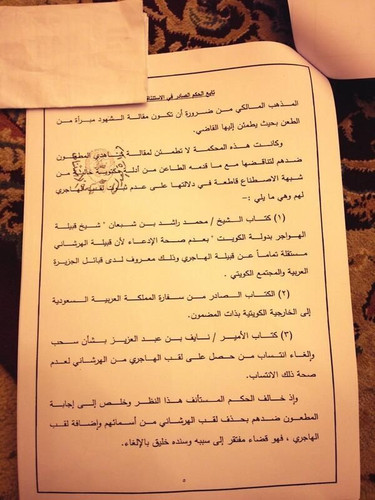 تابع الحكم الصادر في الاستئناف
المذهب المالكي من ضرورة أن تكون مقالة الشهود مبرأة من
الطعن بحيث يطمئن إليها القاضي.
وكانت هذه المحكمة لا تطمئن لمقالة شاهدي المطعون
ضدهم لتناقضها مع ما قدمه الطاعن من أدلة مكتوبة خالية من
شبهة الاصطناع قاطعة في دلالتها على عدم ثبوت لقب الهاجري
لهم وهي ما يلي :-
(١) كتاب الشيخ / محمد راشد بن شعبان " شيخ قبيلة
الهواجر بدولة الكويت " بعدم صحة الإدعاء لأن قبيلة الهرشاني
مستقلة تماماً عن قبيلة الهاجري وذلك معروف لدى قبائل الجزيرة
العربية والمجتمع الكويتي .
(٢) الكتاب الصادر من سفارة المملكة العربية السعودية
إلى الخارجية الكويتية بذات المضمون.
(٣) كتاب الأمير / نايف بن عبد العزيز بشأن سحب
وإلغاء انتساب من حصل على لقب الهاجري من الهرشاني لعدم
صحة ذلك الانتساب.
وإذ خالف الحكم المستأنف هذا النظر وخلص إلى إجابة
المطعون ضدهم بحذف لقب الهرشاني من أسمائهم وإضافة لقب
الهاجري ، فهو قضاء مفتقر إلى سببه وسنده خليق بالإلغاء.
٥